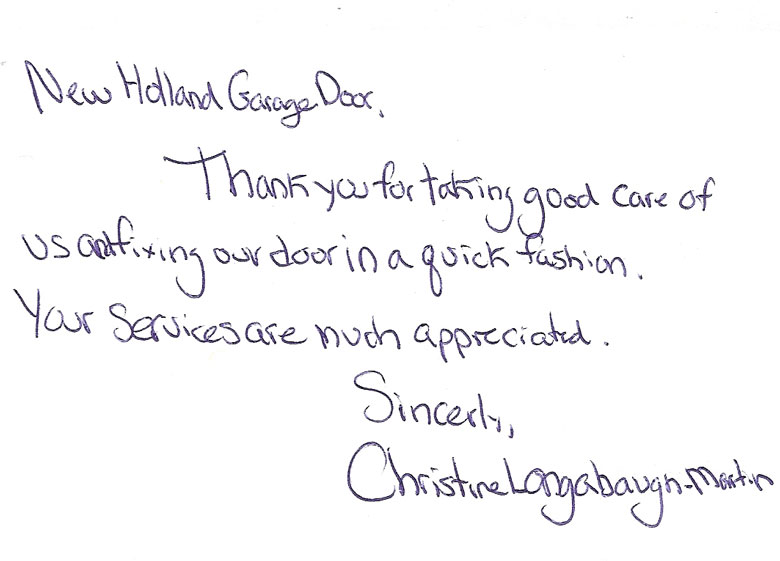 New Holland Garage Door,
Thank you for taking good care of
us and fixing our door in a quick fashion.
Your services are much appreciated.
Sincerly,
Christine Longabaugh-Martin